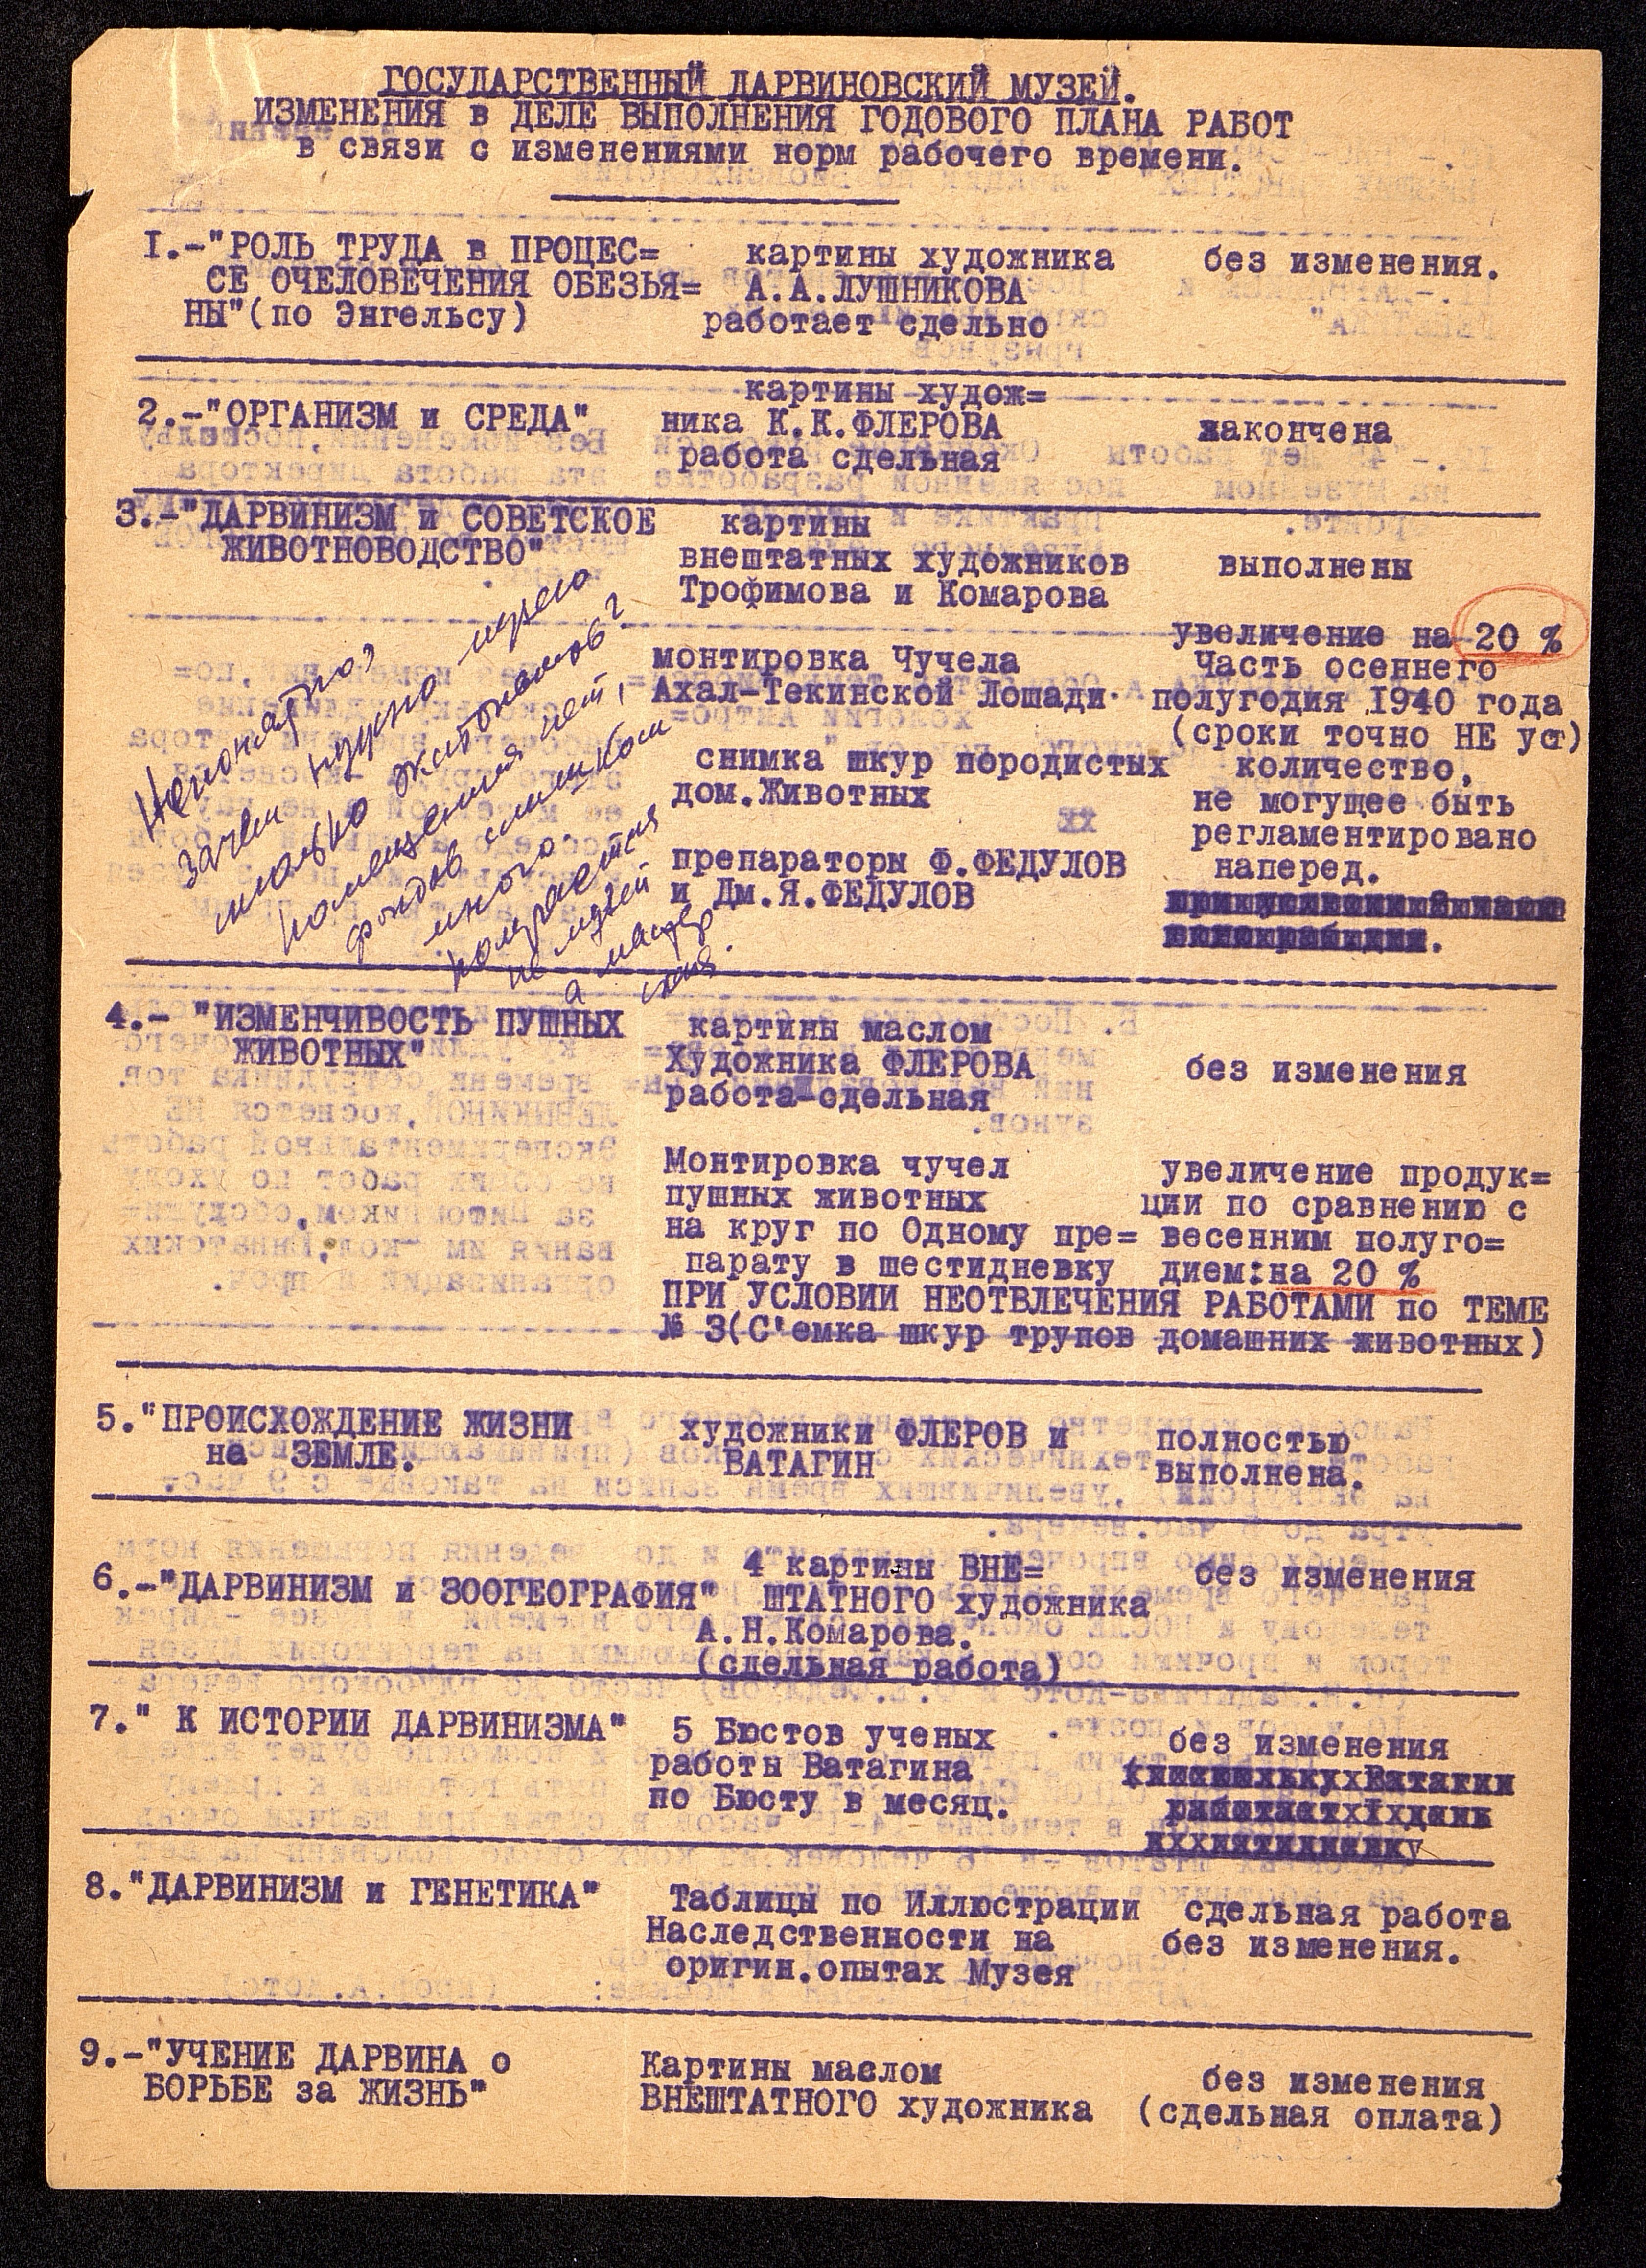 ГОСУДАРСТВЕННЫЙ ДАРВИНОВСКИЙ МУЗЕЙ.
ИЗМЕНЕНИЯ в ДЕЛЕ ВЫПОЛНЕНИЯ ГОДОВОГО ПЛАНА РАБОТ
в связи с изменениями норм рабочего времени.
I.-"РОЛЬ ТРУДА в ПРОЦЕС=
СЕ ОЧЕЛОВЕЧЕНИЯ ОБЕЗЬЯ=
НЫ"(по Энгельсу)
картины художника
А.А.ЛУШНИКОВА
работает сдельно
без изменения.
2.-"ОРГАНИЗМ и СРЕДА"
картины худож=
ника К.К.ФЛЕРОВА
работа сдельная
закончена
3.-"ДАРВИНИЗМ и СОВЕТСКОЕ
ЖИВОТНОВОДСТВО"
картины
внештатных художников
Трофимова и Комарова
выполнены
Непонятно,
зачем нужно музею
столько экспонатов?
помещения нет,
фондов слишком
много.
получается
не музей
а мастер
ская.
монтировка Чучела
Ахал-Текинской Лошади
увеличение на 20 %
Часть осеннего
полугодия 1940 года
(сроки точно НЕ уст)
снимка шкур породистых
дом.Животных
количество,
не могущее быть
регламентировано
наперед.
препараторы Ф.ФЕДУЛОВ
и Дм.Я.ФЕДУЛОВ
4.- "ИЗМЕНЧИВОСТЬ ПУШНЫХ
ЖИВОТНЫХ"
картины маслом
Художника ФЛЕРОВА
работа-сдельная
без изменения
Монтировка чучел
пушных животных
на круг по Одному пре=
парату в шестидневку
увеличение продук=
ции по сравнению с
весенним полуго=
дием:на 20 %
ПРИ УСЛОВИИ НЕОТВЛЕЧЕНИЯ РАБОТАМИ по ТЕМЕ
№ 3(С'емка шкур трупов домашних животных)
5."ПРОИСХОЖДЕНИЕ ЖИЗНИ
на ЗЕМЛЕ.
художники ФЛЕРОВ и
ВАТАГИН
полностью
выполнена.
6.-"ДАРВИНИЗМ и ЗООГЕОГРАФИЯ"
4 картины ВНЕ=
ШТАТНОГО художника
А.Н.Комарова.
(сдельная работа)
без изменения
7." К ИСТОРИИ ДАРВИНИЗМА"
5 Бюстов ученых
работы Ватагина
по Бюсту в месяц.
без изменения
8."ДАРВИНИЗМ и ГЕНЕТИКА"
Таблицы по Иллюстрации
Наследственности на
оригин.опытах Музея
сдельная работа
без изменения.
9.-"УЧЕНИЕ ДАРВИНА о
БОРЬБЕ за ЖИЗНЬ"
Картины маслом
ВНЕШТАТНОГО художника
без изменения
(сдельная оплата)